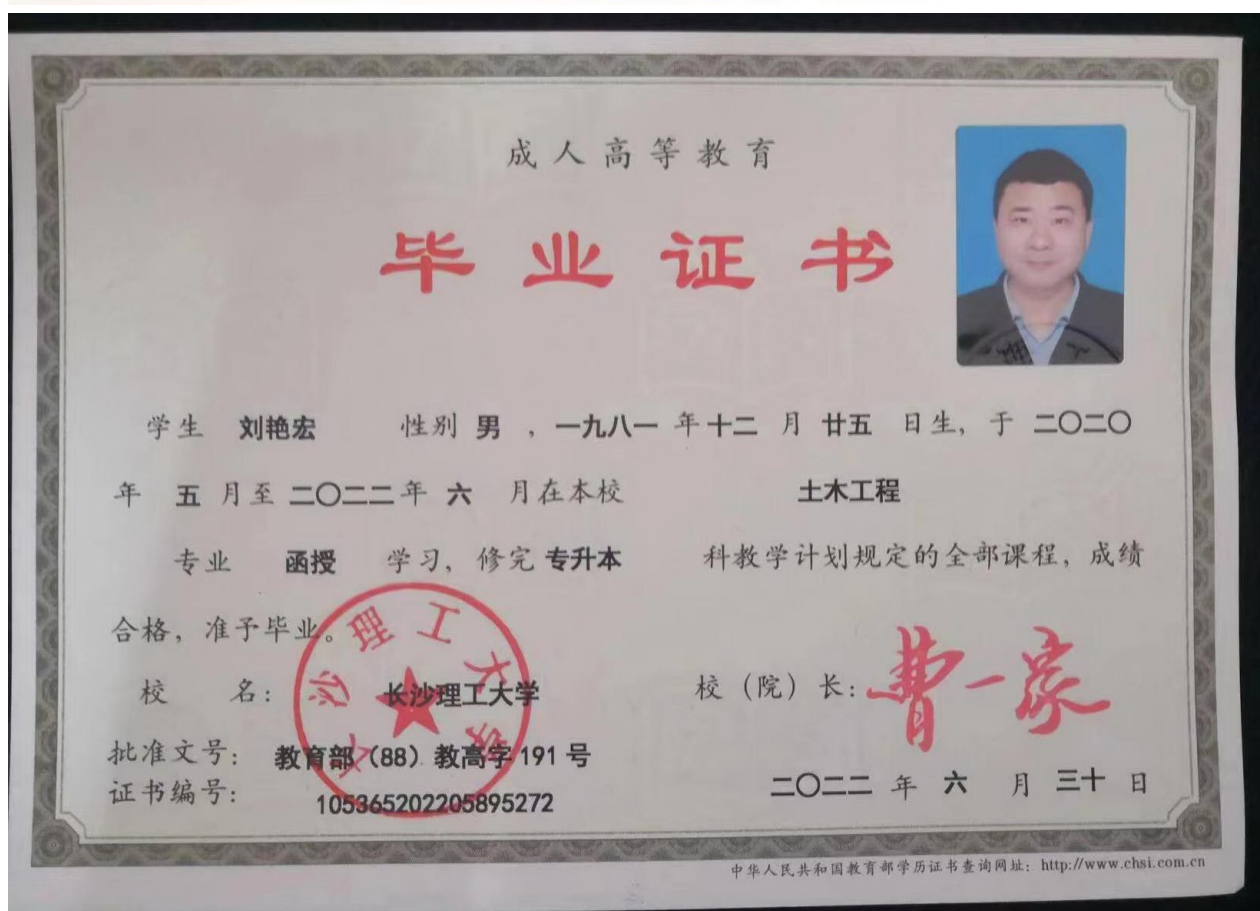 成人高等教育
毕业证书
学生 刘艳宏 性别 男 ，一九八一 年 十二 月 廿五 日生，于 二〇二〇
年 五 月至 二〇二二 年 六 月在本校 土木工程
专业 函授 学习，修完 专升本 科教学计划规定的全部课程，成绩
合格，准予毕业。
长沙理工大学
校 名： 长沙理工大学 校（院）长：曹一家
批准文号： 教育部（88）教高字 191 号
证书编号： 105365202205895272 二〇二二 年 六 月 三十 日
中华人民共和国教育部学历证书查询网址：http://www.chsi.com.cn